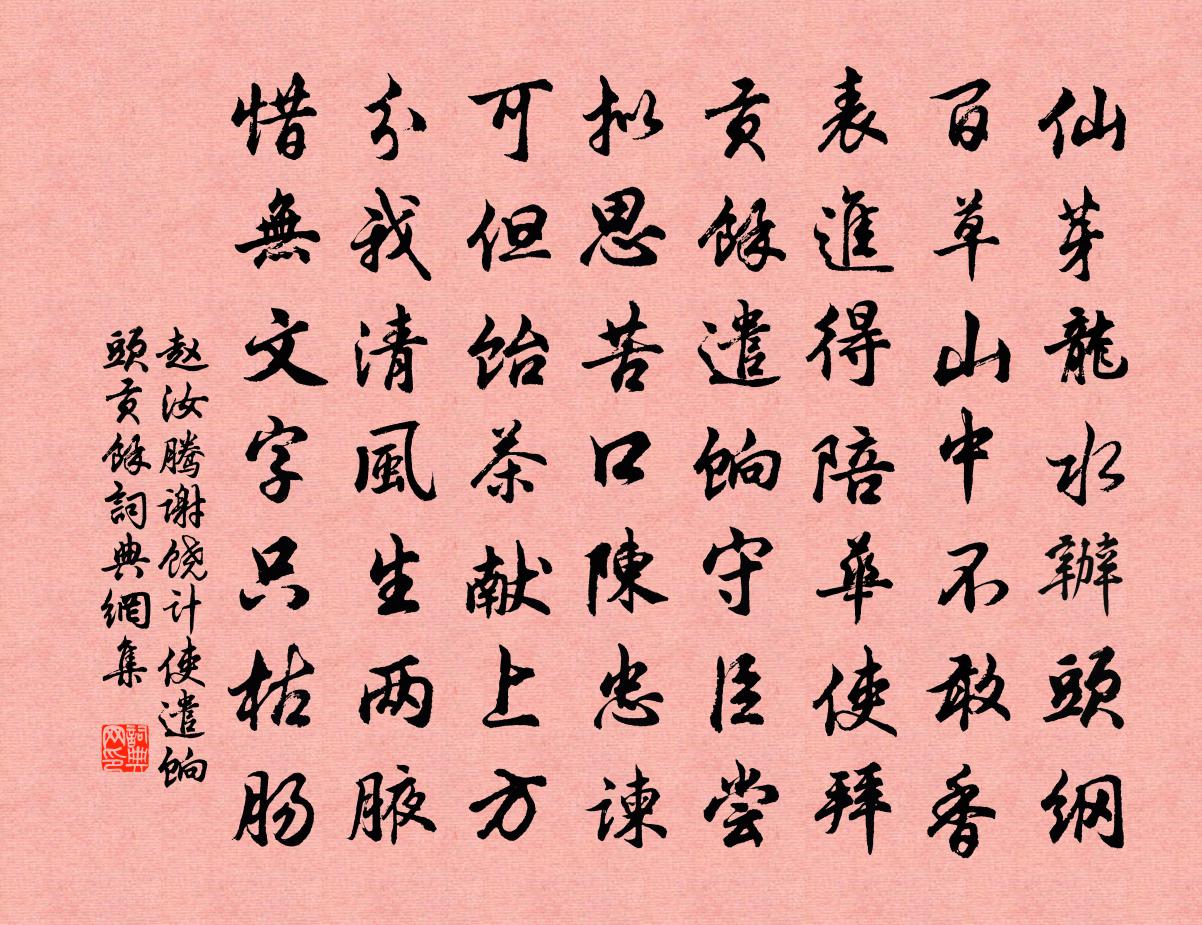 仙芽龍水辦頭纲
百草山中不敢香
表進得陪華使拜
贡餘遣餉守臣尝
拟思苦口陳忠谏
可但饴茶献上方
分我清風生两腋
惜無文字只枯肠
赵汝腾谢饶计使遣餉
頭贡餘詞典網集
詞典网印